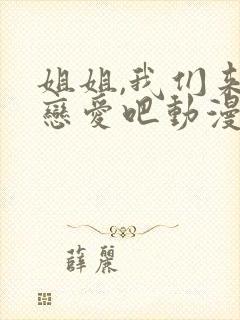 姐姐,我们来
戀愛吧動漫
薛麗